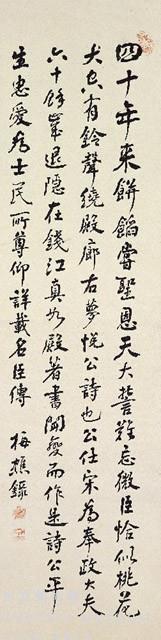 四十年來餅餡嘗聖恩天大誓難忘微臣恰似桃花
犬也有鈴聲繞殿廊右夢悅公詩也公任宋為奉政大夫
六十餘歲退隱在錢江真如殿著書聞變而作是詩公平
生忠愛為士民所尊仰詳載名臣傳
梅樵錄